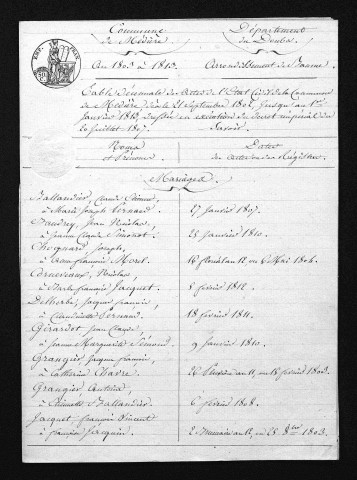 Commune
de Médière
Département
du Doubs
An 1803 à 1813.
Arrondissement de Baume
Table Décennale des Actes de l'Etat Civil de la Commune
de Médière, dès le 21 Septembre 1802, jusqu'au 1er
Janvier 1813, dressée en exécution du décret impérial du
20 Juillet 1807.
Savoir
Noms
et Prénoms
Dates
des actes sur les Registres
Mariages
Ballandier, Claude Etienne,
à Marie Joseph Pernard
27 Janvier 1807.
Baudry, Jean Nicolas,
à Jeanne Simonot
25 Janvier 1810.
Chequard Joseph,
à Jean françoise Morel
16 floréal an 12 ou 6 Mai 1804.
Cruevaux, Nicolas,
à françoise Jacquet
8 février 1812
Jacques francois,
à Claudine Pernard
18 février 1811.
Girardot Jean Claude,
à Jeanne Marguerite Simond
9 Janvier 1810.
Grangier, Jacques francois,
à Catherine Chavre
an 11, ou 18 février 1803.
Grangier Antoine,
à Ballandier
6 février 1808.
Jacquet, francois Vincent
à francoise Jacquin
2 Brumaire an 12, ou 25 8bre 1803.